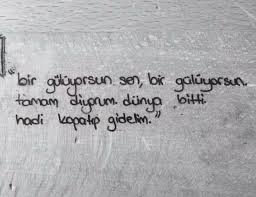 "bir gülüyorsun sen, bir gülüyorsun.
tamam diyorum dünya bitti
hadi kapatıp gidelim."